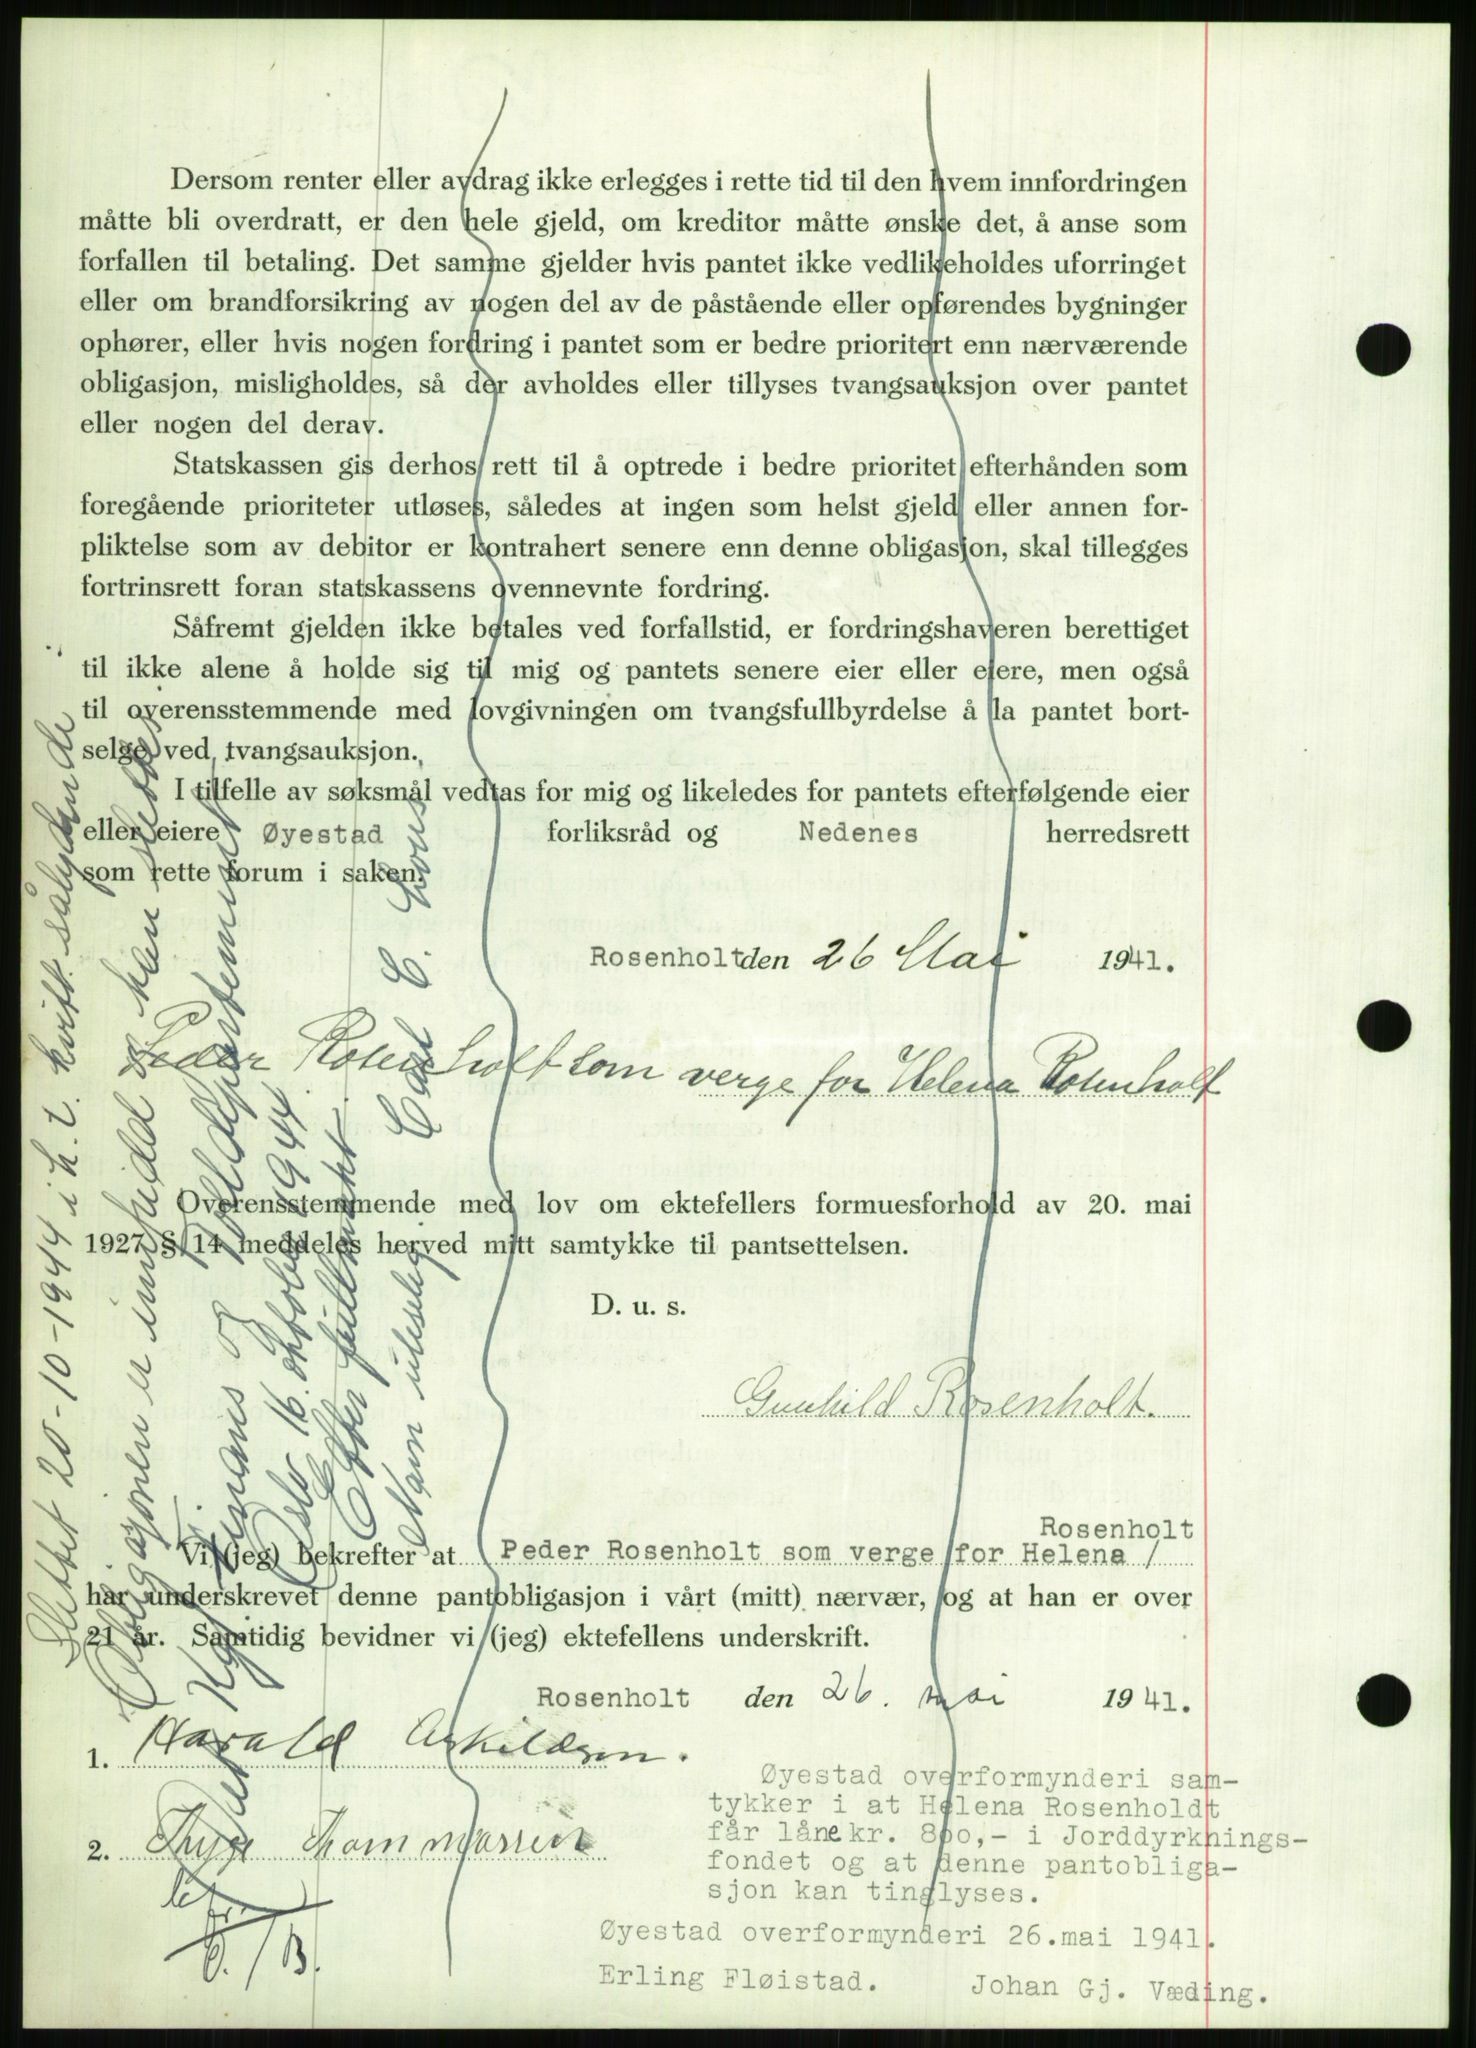 Dersom renter eller avdrag ikke erlegges i rette tid til den hvem innfordringen
måtte bli overdratt, er den hele gjeld, om kreditor måtte ønske det, å anse som
forfallen til betaling. Det samme gjelder hvis pantet ikke vedlikeholdes uforringet
eller om brandforsikring av nogen del av de påstående eller opførendes bygninger
ophører, eller hvis nogen fordring i pantet som er bedre prioritert enn nærværende
obligasjon, misligholdes, så der avholdes eller tillyses tvangsauksjon over pantet
eller nogen del derav.
Statskassen gis derhos rett til å optrede i bedre prioritet efterhånden som
foregående prioriteter utløses, således at ingen som helst gjeld eller annen for-
pliktelse som av debitor er kontrahert senere enn denne obligasjon, skal tillegges
fortrinsrett foran statskassens ovennevnte fordring.
Såfremt gjelden ikke betales ved forfallstid, er fordringshaveren berettiget
til ikke alene å holde sig til mig og pantets senere eier eller eiere, men også
til overensstemmende med lovgivningen om tvangsfullbyrdelse å la pantet bort-
selge ved tvangsauksjon.
I tilfelle av søksmål vedtas for mig og likeledes for pantets efterfølgende eier
eller eiere Øyestad forliksråd og Nedenes herredsrett
som rette forum i saken.
Rosenholt den 26 Mai 1941.
Peder Rosenholt som verge for Helena Rosenholt
Overensstemmende med lov om ektefellers formuesforhold av 20. mai
1927 § 14 meddeles herved mitt samtykke til pantsettelsen.
D. u. s.
Gunhild Rosenholt.
Rosenholt
Vi (jeg) bekrefter at Peder Rosenholt som verge for Helena /
har underskrevet denne pantobligasjon i vårt (mitt) nærvær, og at han er over
21 år. Samtidig bevidner vi (jeg) ektefellens underskrift.
Rosenholt den 26. mai 1941.
1. Harald Askildsen.
2. Thyge Thommassen
Øyestad overformynderi sam-
tykker i at Helena Rosenholdt
får låne kr. 800,- i Jorddyrknings-
fondet og at denne pantobliga-
sjon kan tinglyses.
Øyestad overformynderi 26.mai 1941.
Erling Fløistad. Johan Gj. Væding.
Slettet 20-10-1944 i h. t. kvitt. sålydende
Obligasjonen er innfridd og kan slettes
Det Kgl. Finans og Tolldepartement
Oslo 16. oktober 1944
Efter fullmakt
Navn uleselig Carl C. Lous